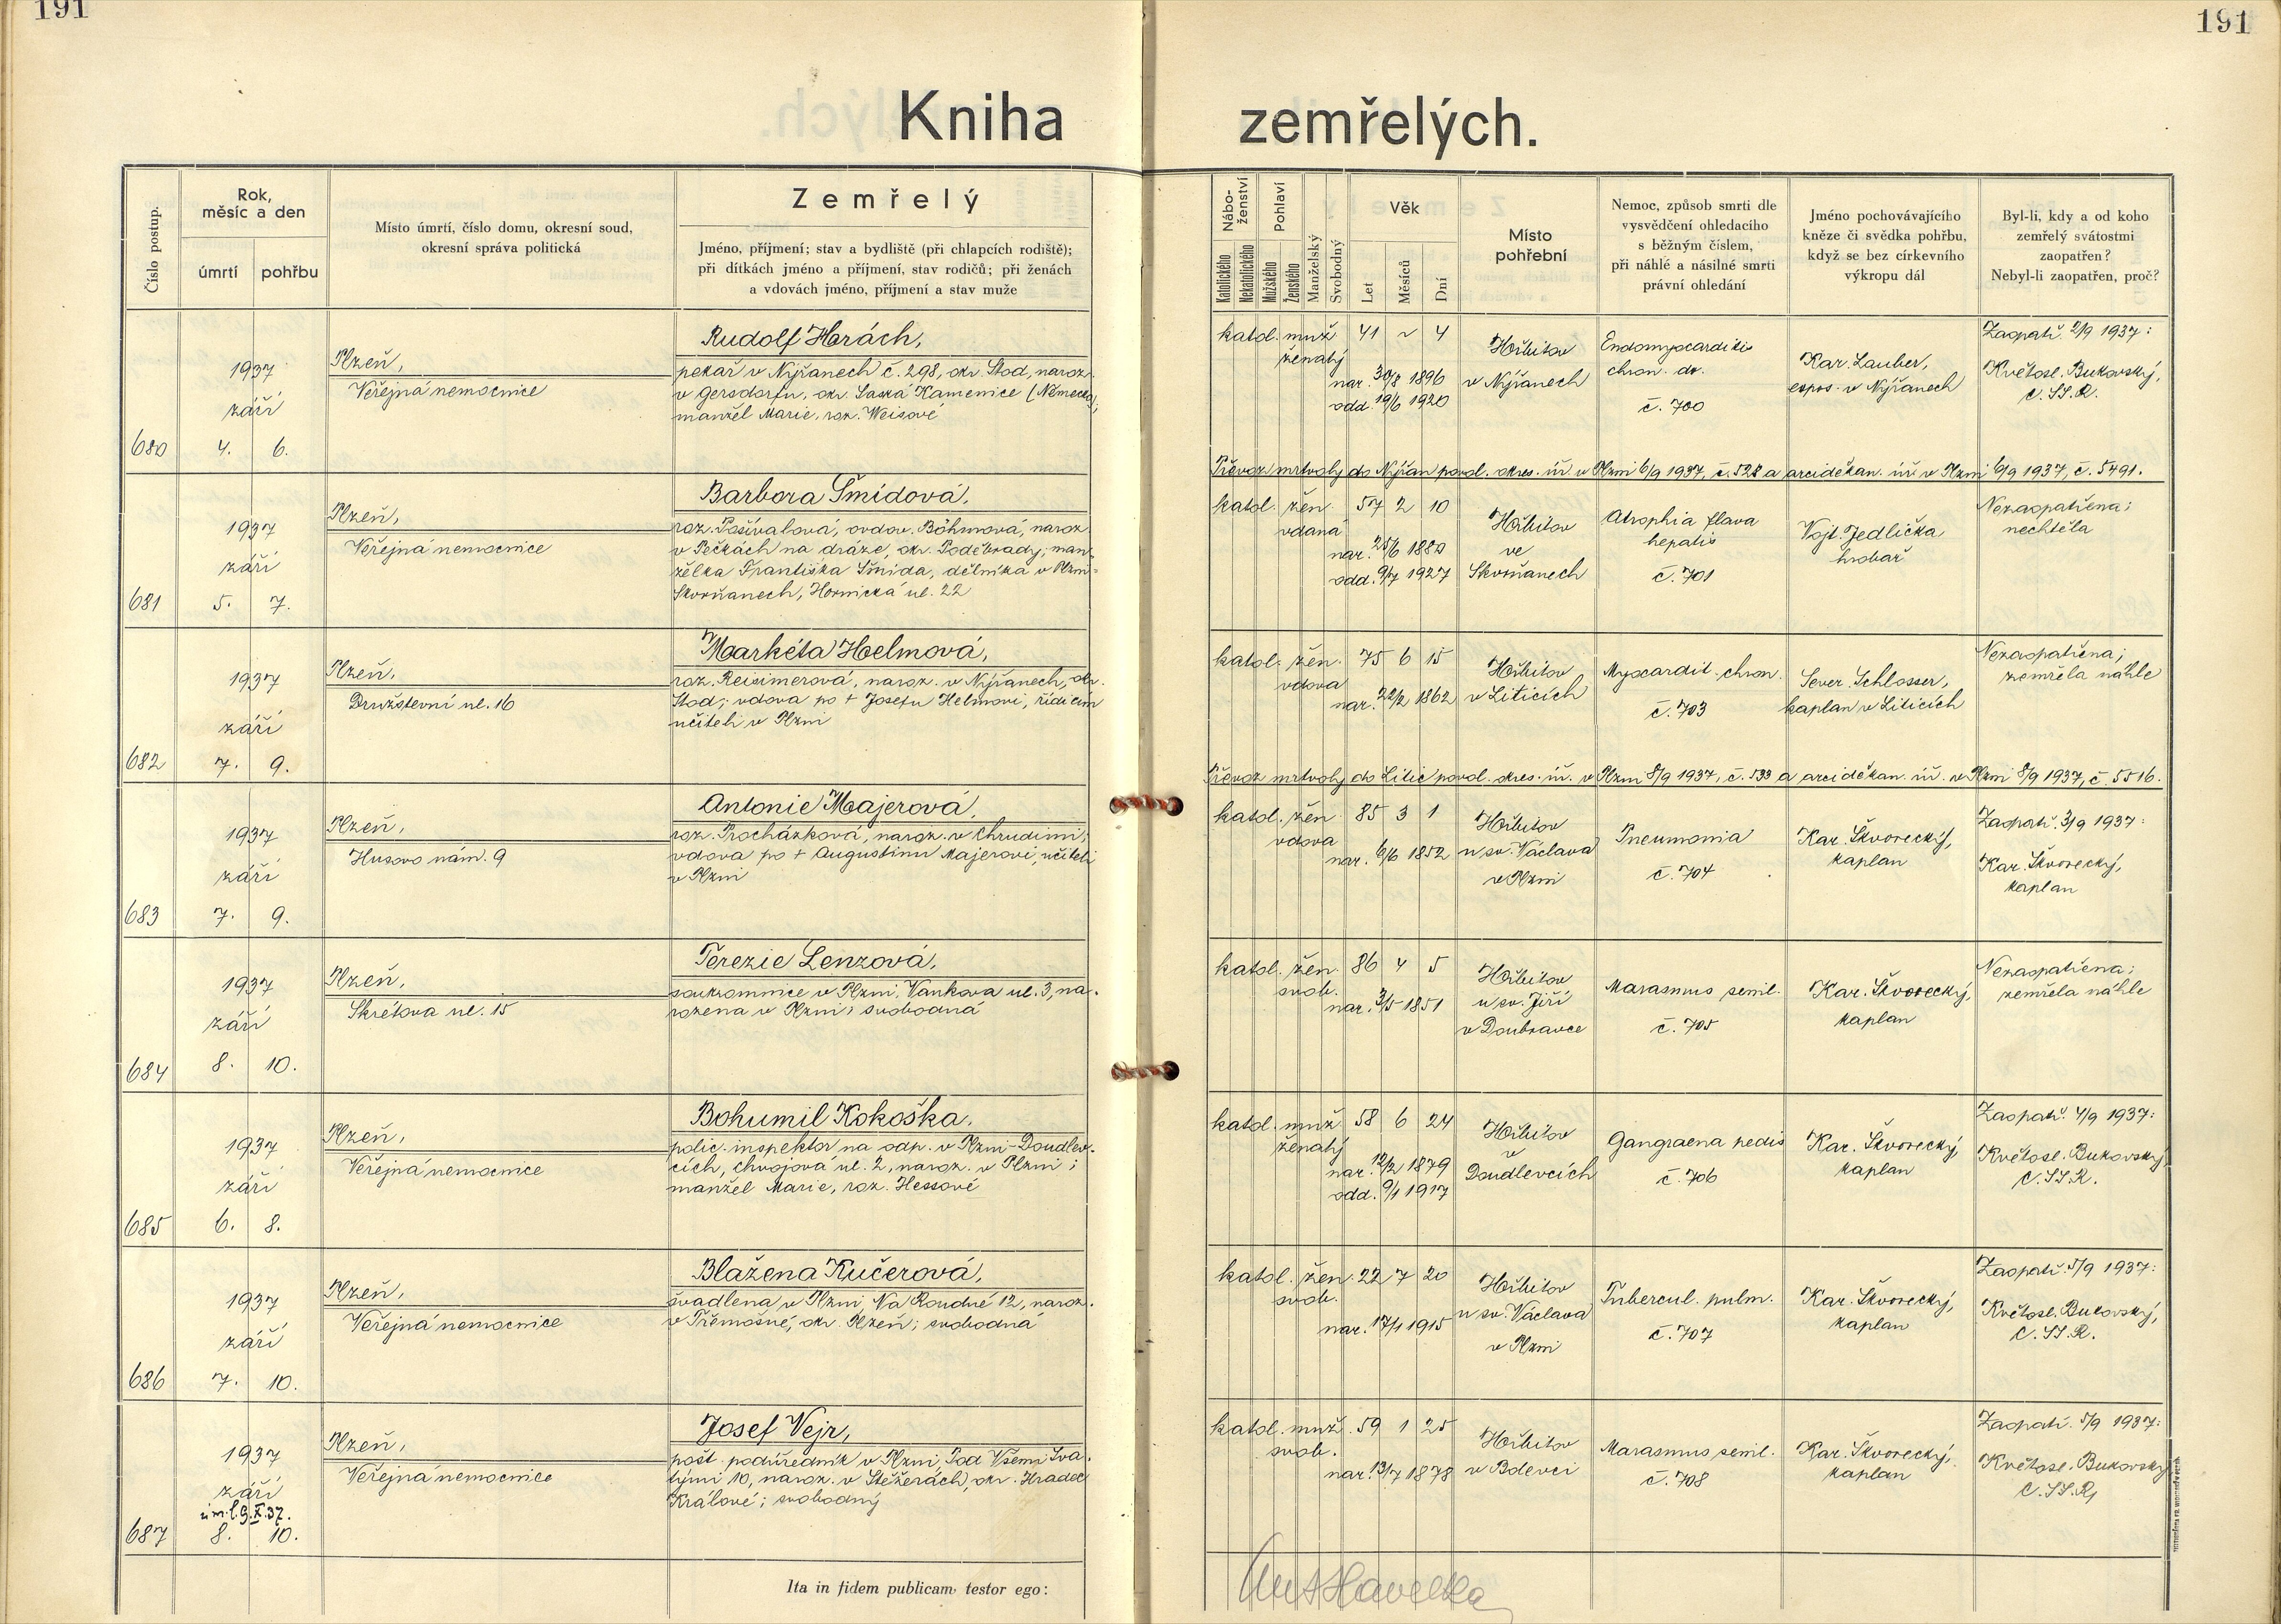 191
191
Kniha zemřelých.
Číslo postup.
Rok,
měsíc a den
úmrtí
pohřbu
Místo úmrtí, číslo domu, okresní soud,
okresní správa politická
Zemřelý
Jméno, příjmení; stav a bydliště (při chlapcích rodiště);
při dítkách jméno a příjmení, stav rodičů; při ženách
a vdovách jméno, příjmení a stav muže
Nábo-
ženství
Katolického
Nekatolického
Pohlaví
Mužského
Ženského
Manželský
Svobodný
Věk
Let
Měsíců
Dní
Místo
pohřební
Nemoc, způsob smrti dle
vysvědčení ohledacího
s běžným číslem,
při náhlé a násilné smrti
právní ohledání
Jméno pochovávajícího
kněze či svědka pohřbu,
když se bez církevního
výkropu dál
Byl-li, kdy a od koho
zemřelý svátostmi
zaopatřen?
Nebyl-li zaopatřen, proč?
680
1937
září
4. 6.
Plzeň,
Veřejná nemocnice
Rudolf Horách,
pekař v Nýřanech č. 298, okr. Stod, naroz.
v Gersdorfu, okr. Saská Kamenice (Německo);
manžel Marie, roz. Weisové
katol. muž. 41 ~ 4
ženatý
nar. 30/8 1896
odd. 19/6 1920
Hřbitov
v Nýřanech
Endomyocarditis
chron. dx.
č. 700
Kar. Lauber,
expos. v Nýřanech
Zaopatř. 2/9 1937:
Květosl. Bukovský,
C. SS. R.
Převoz mrtvoly do Nýřan povol. okres. úř. v Plzni 6/9 1937, č. 528 a arciděkan. úř. v Plzni 6/9 1937, č. 5491.
681
1937
září
5. 7.
Plzeň,
Veřejná nemocnice
Barbora Šmídová,
roz. Pošívalová, ovdov. Böhmová, naroz.
v Pečkách na dráze, okr. Poděbrady; man-
želka Františka Šmída, dělníka v Plzni-
Skvrňanech, Hornická ul. 22
katol. žen. 57 2 10
vdaná
nar. 25/6 1880
odd. 9/7 1927
Hřbitov
ve
Skvrňanech
Atrophia flava
hepatis
č. 701
Vojt. Jedlička
hrobař
Nezaopatřena;
nechtěla
682
1937
září
7. 9.
Plzeň,
Družstevní ul. 16
Markéta Helmová,
roz. Reisimerová, naroz. v Nýřanech, okr.
Stod; vdova po + Josefu Helmovi, řídícím
učiteli v Plzni
katol. žen. 75 6 15
vdova
nar. 22/2 1862
Hřbitov
v Liticích
Myocardit. chron.
č. 703
Sever. Schlosser,
kaplan v Liticích
Nezaopatřena;
zemřela náhle
Převoz mrtvoly do Litic povol. okres. úř. v Plzni 8/9 1937, č. 533 a arciděkan. úř. v Plzni 8/9 1937, č. 5516.
683
1937
září
7. 9.
Plzeň,
Husovo nám. 9
Antonie Majerová,
roz. Procházková, naroz. v Chrudimi;
vdova po + Augustinu Majerovi, učiteli
v Plzni
katol. žen. 85 3 1
vdova
nar. 6/6 1852
Hřbitov
u sv. Václava
v Plzni
Pneumonia
č. 704
Kar. Škvorecký,
kaplan
Zaopatř. 3/9 1937:
Kar. Škvorecký,
kaplan
684
1937
září
8. 10.
Plzeň,
Skrétova ul. 15
Terezie Lenzová,
soukromnice v Plzni, Vaňkova ul. 3, na-
rozena v Plzni; svobodná
katol. žen. 86 4 5
svob.
nar. 3/5 1851
Hřbitov
u sv. Jiří
v Doubravce
Marasmus senil.
č. 705
Kar. Škvorecký,
kaplan
Nezaopatřena;
zemřela náhle
685
1937
září
6. 8.
Plzeň,
Veřejná nemocnice
Bohumil Kokoška,
polic. inspektor na odp. v Plzni-Doudlev-
cích, Chvojova ul. 2, naroz. v Plzni;
manžel Marie, roz. Hessové
katol. muž. 58 6 24
ženatý
nar. 12/2 1879
odd. 9/1 1917
Hřbitov
v
Doudlevcích
Gangraena pedis
č. 706
Kar. Škvorecký,
kaplan
Zaopatř. 4/9 1937:
Květosl. Bukovský,
C. SS. R.
686
1937
září
7. 10.
Plzeň,
Veřejná nemocnice
Blažena Kučerová,
švadlena v Plzni, Na Roudné 12, naroz.
v Třemošné, okr. Plzeň; svobodná
katol. žen. 22 7 20
svob.
nar. 17/1 1915
Hřbitov
u sv. Václava
v Plzni
Tubercul. pulm.
č. 707
Kar. Škvorecký,
kaplan
Zaopatř. 5/9 1937:
Květosl. Bukovský,
C. SS. R.
687
1937
září
8. 10.
Plzeň,
Veřejná nemocnice
Josef Vejr,
pošt. podúředník v Plzni, Pod Všemi Sva-
tými 10, naroz. v Stěžerách, okr. Hradec
Králové; svobodný
katol. muž. 59 1 25
svob.
nar. 13/7 1878
Hřbitov
v Bolevci
Marasmus senil.
č. 708
Kar. Škvorecký,
kaplan
Zaopatř. 5/9 1937:
Květosl. Bukovský
C. SS. R.
Ita in fidem publicam testor ego:
Ant Havelka